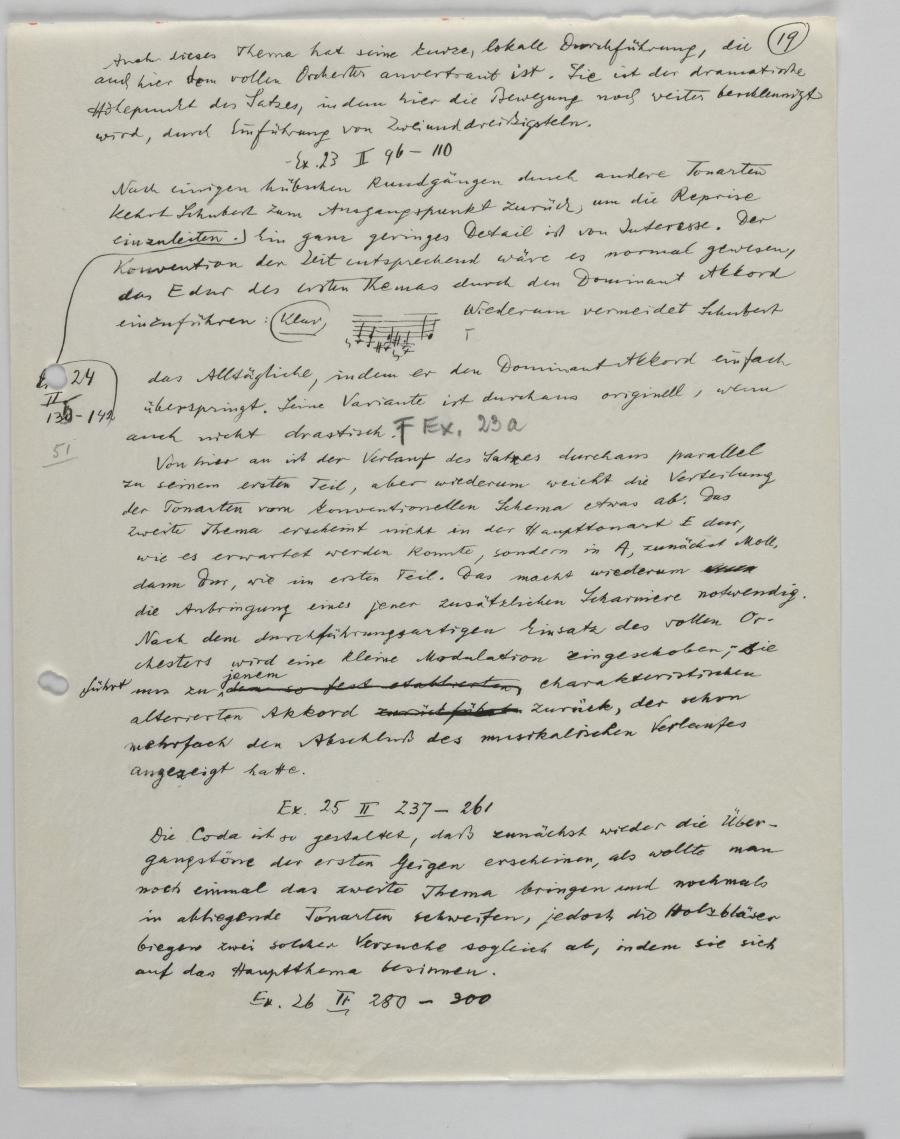 19
Auch dieses Thema hat seine kurze, lokale Durchführung, die
auch hier dem vollen Orchester anvertraut ist. Sie ist der dramatische
Höhepunkt des Satzes, indem hier die Bewegung noch weiter beschleunigt
wird, durch Einführung von Zweiunddreißigsteln.
Ex. 23 II 96 – 110
Nach einigen hübschen Rundgängen durch andere Tonarten
kehrt Schubert zum Ausgangspunkt zurück, um die Reprise
einzuleiten. Ein ganz geringes Detail ist von Interesse. Der
Konvention der Zeit entsprechend wäre es normal gewesen,
das E dur des ersten Themas durch den Dominant Akkord
einzuführen: Klav, Wiederum vermeidet Schubert
Ex. 24
II
130-142
51
das Alltägliche, indem er den Dominant Akkord einfach
überspringt. Seine Variante ist durchaus originell, wenn
auch nicht drastisch. F Ex. 23a
Von hier an ist der Verlauf des Satzes durchaus parallel
zu seinem ersten Teil, aber wiederum weicht die Verteilung
der Tonarten vom konventionellen Schema etwas ab. Das
zweite Thema erscheint nicht in der Haupttonart E dur,
wie es erwartet werden konnte, sondern in A, zunächst Moll,
dann Dur, wie im ersten Teil. Das macht wiederum
die Anbringung eines jener zusätzlichen Scharniere notwendig.
Nach dem durchführungsartigen Einsatz des vollen Or-
chesters wird eine kleine Modulation eingeschoben; sie
führt uns zu jenem dem so fest etablierten, charakteristischen
alterierten Akkord zurückführt zurück, der schon
mehrfach den Abschluß des musikalischen Verlaufes
angezeigt hatte.
Ex. 25 II 237 – 261
Die Coda ist so gestaltet, daß zunächst wieder die Über-
gangstöne der ersten Geigen erscheinen, als wollte man
noch einmal das zweite Thema bringen und nochmals
in abliegende Tonarten schweifen, jedoch die Holzbläser
biegen zwei solcher Versuche sogleich ab, indem sie sich
auf das Hauptthema besinnen.
Ex. 26 II 280 – 300